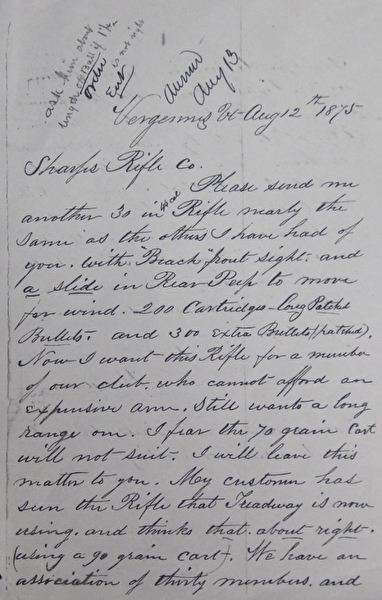 ask him about
length of Ball if 1½
is not right
order
Ent
Ansrd
Aug 13
Vergennes Vt Aug 12th 1875
Sharps Rifle Co.
Please send me
another 30 in 45 cal Rifle nearly the
same as the others I have had of
you. with Beach front sight, and
a slide in Rear Peep to move
for wind. 200 Cartridges long Patched
Bullets, and 300 extra Bullets (patched).
Now I want this Rifle for a member
of our club. who cannot afford an
expensive arm. Still wants a long
range one. I fear the 70 grain Cart
will not suit. I will leave this
matter to you. My customer has
seen the Rifle that Treadway is now
using. and thinks that about right.
(using a 90 grain cart). We have an
association of thirty members. and